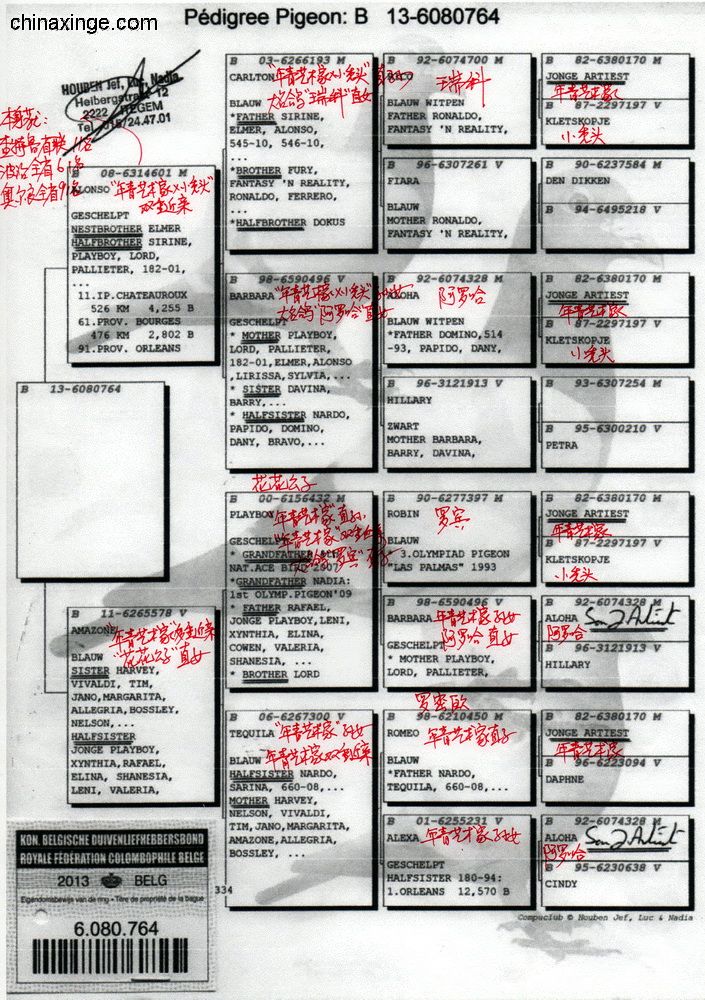 chinaxinge.com
Pédigree Pigeon: B 13-6080764
HOUBEN Jef, Luc, Nadia
Heibergstraat 12
2222 ITEGEM
Tel. 015/24.47.01
B 08-6314601 M
ALONSO
"年青艺术家X小秃头"
双重近亲
GESCHELPT
NESTBROTHER ELMER
HALFBROTHER SIRINE,
PLAYBOY, LORD,
PALLIETER, 182-01,
...
11.IP.CHATEAUROUX
526 KM 4,255 B
61.PROV. BOURGES
476 KM 2,802 B
91.PROV. ORLEANS
B 13-6080764
B 11-6265578 V
AMAZONE
"花花公子"直女
BLAUW
SISTER HARVEY,
VIVALDI, TIM,
JANO,MARGARITA,
ALLEGRIA,BOSSLEY,
NELSON,...
HALFSISTER
JONGE PLAYBOY,
XYNTHIA,RAFAEL,
ELINA, SHANESIA,
LENI, VALERIA,
B 03-6266193 M
CARLTON
"年青艺术家X小秃头"
大名鸽"瑞科"直女
BLAUW
*FATHER SIRINE,
ELMER, ALONSO,
545-10, 546-10,
...
*BROTHER FURY,
FANTASY 'N REALITY,
RONALDO, FERRERO,
...
*HALFBROTHER DOKUS
B 98-6590496 V
BARBARA
"年青艺术家X小秃头"孙女
大名鸽"阿罗哈"直女
GESCHELPT
* MOTHER PLAYBOY,
LORD, PALLIETER,
182-01,ELMER,ALONSO
,LIRISSA,SYLVIA,...
* SISTER DAVINA,
BARRY,...
* HALFSISTER NARDO,
PAPIDO, DOMINO,
DANY, BRAVO,...
花花公子
B 00-6156432 M
PLAYBOY
"年青艺术家"直孙
"年青艺术家"双重近亲
GESCHELPT
* GRANDFATHER
NAT.ACE
*GRANDFATHER NADIA:
1st OLYMP.PIGEON'09
* FATHER RAFAEL,
JONGE PLAYBOY,LENI,
XYNTHIA, ELINA,
COWEN, VALERIA,
SHANESIA, ...
* BROTHER LORD
B 06-6267300 V
TEQUILA
"年青艺术家"孙女
年青艺术家双重近亲
BLAUW
HALFSISTER NARDO,
SARINA, 660-08,...
MOTHER HARVEY,
NELSON, VIVALDI,
TIM,JANO,MARGARITA,
AMAZONE,ALLEGRIA,
BOSSLEY, ...
B 92-6074700 M
瑞科
BLAUW WITPEN
FATHER RONALDO,
FANTASY 'N REALITY,
B 96-6307261 V
FIARA
BLAUW
MOTHER RONALDO,
FANTASY 'N REALITY,
B 92-6074328 M
ALOHA
阿罗哈
BLAUW WITPEN
*FATHER DOMINO,514
-93, PAPIDO, DANY,
B 96-3121913 V
HILLARY
ZWART
MOTHER BARBARA,
BARRY, DAVINA,
B 90-6277397 M
ROBIN
罗宾
BLAUW
* 3.OLYMPIAD PIGEON
"LAS PALMAS" 1993
B 98-6590496 V
BARBARA
年青艺术家孙女
阿罗哈 直女
GESCHELPT
* MOTHER PLAYBOY,
LORD, PALLIETER,
罗密欧
B 98-6210450 M
ROMEO
年青艺术家直子
BLAUW
*FATHER NARDO,
TEQUILA, 660-08,...
B 01-6255231 V
ALEXA
年青艺术家孙女
GESCHELPT
HALFSISTER 180-94:
1.ORLEANS 12,570 B
B 82-6380170 M
JONGE ARTIEST
年青艺术家
B 87-2297197 V
KLETSKOPJE
小秃头
B 90-6237584 M
DEN DIKKEN
B 94-6495218 V
B 82-6380170 M
JONGE ARTIEST
年青艺术家
B 87-2297197 V
KLETSKOPJE
小秃头
B 93-6307254 M
B 95-6300210 V
PETRA
B 82-6380170 M
JONGE ARTIEST
年青艺术家
B 87-2297197 V
KLETSKOPJE
小秃头
B 92-6074328 M
ALOHA
阿罗哈
B 96-3121913 V
HILLARY
B 82-6380170 M
JONGE ARTIEST
年青艺术家
B 96-6223094 V
DAPHNE
B 92-6074328 M
ALOHA
阿罗哈
B 95-6230638 V
CINDY
KON. BELGISCHE DUIVENLIEFHEBBERSBOND
ROYALE FÉDÉRATION COLOMBOPHILE BELGE
2013 BELG
Eigendomsbewijs van de ring - Titre de propriété de la bague
6.080.764
334
Compuclub © Houben Jef, Luc & Nadia